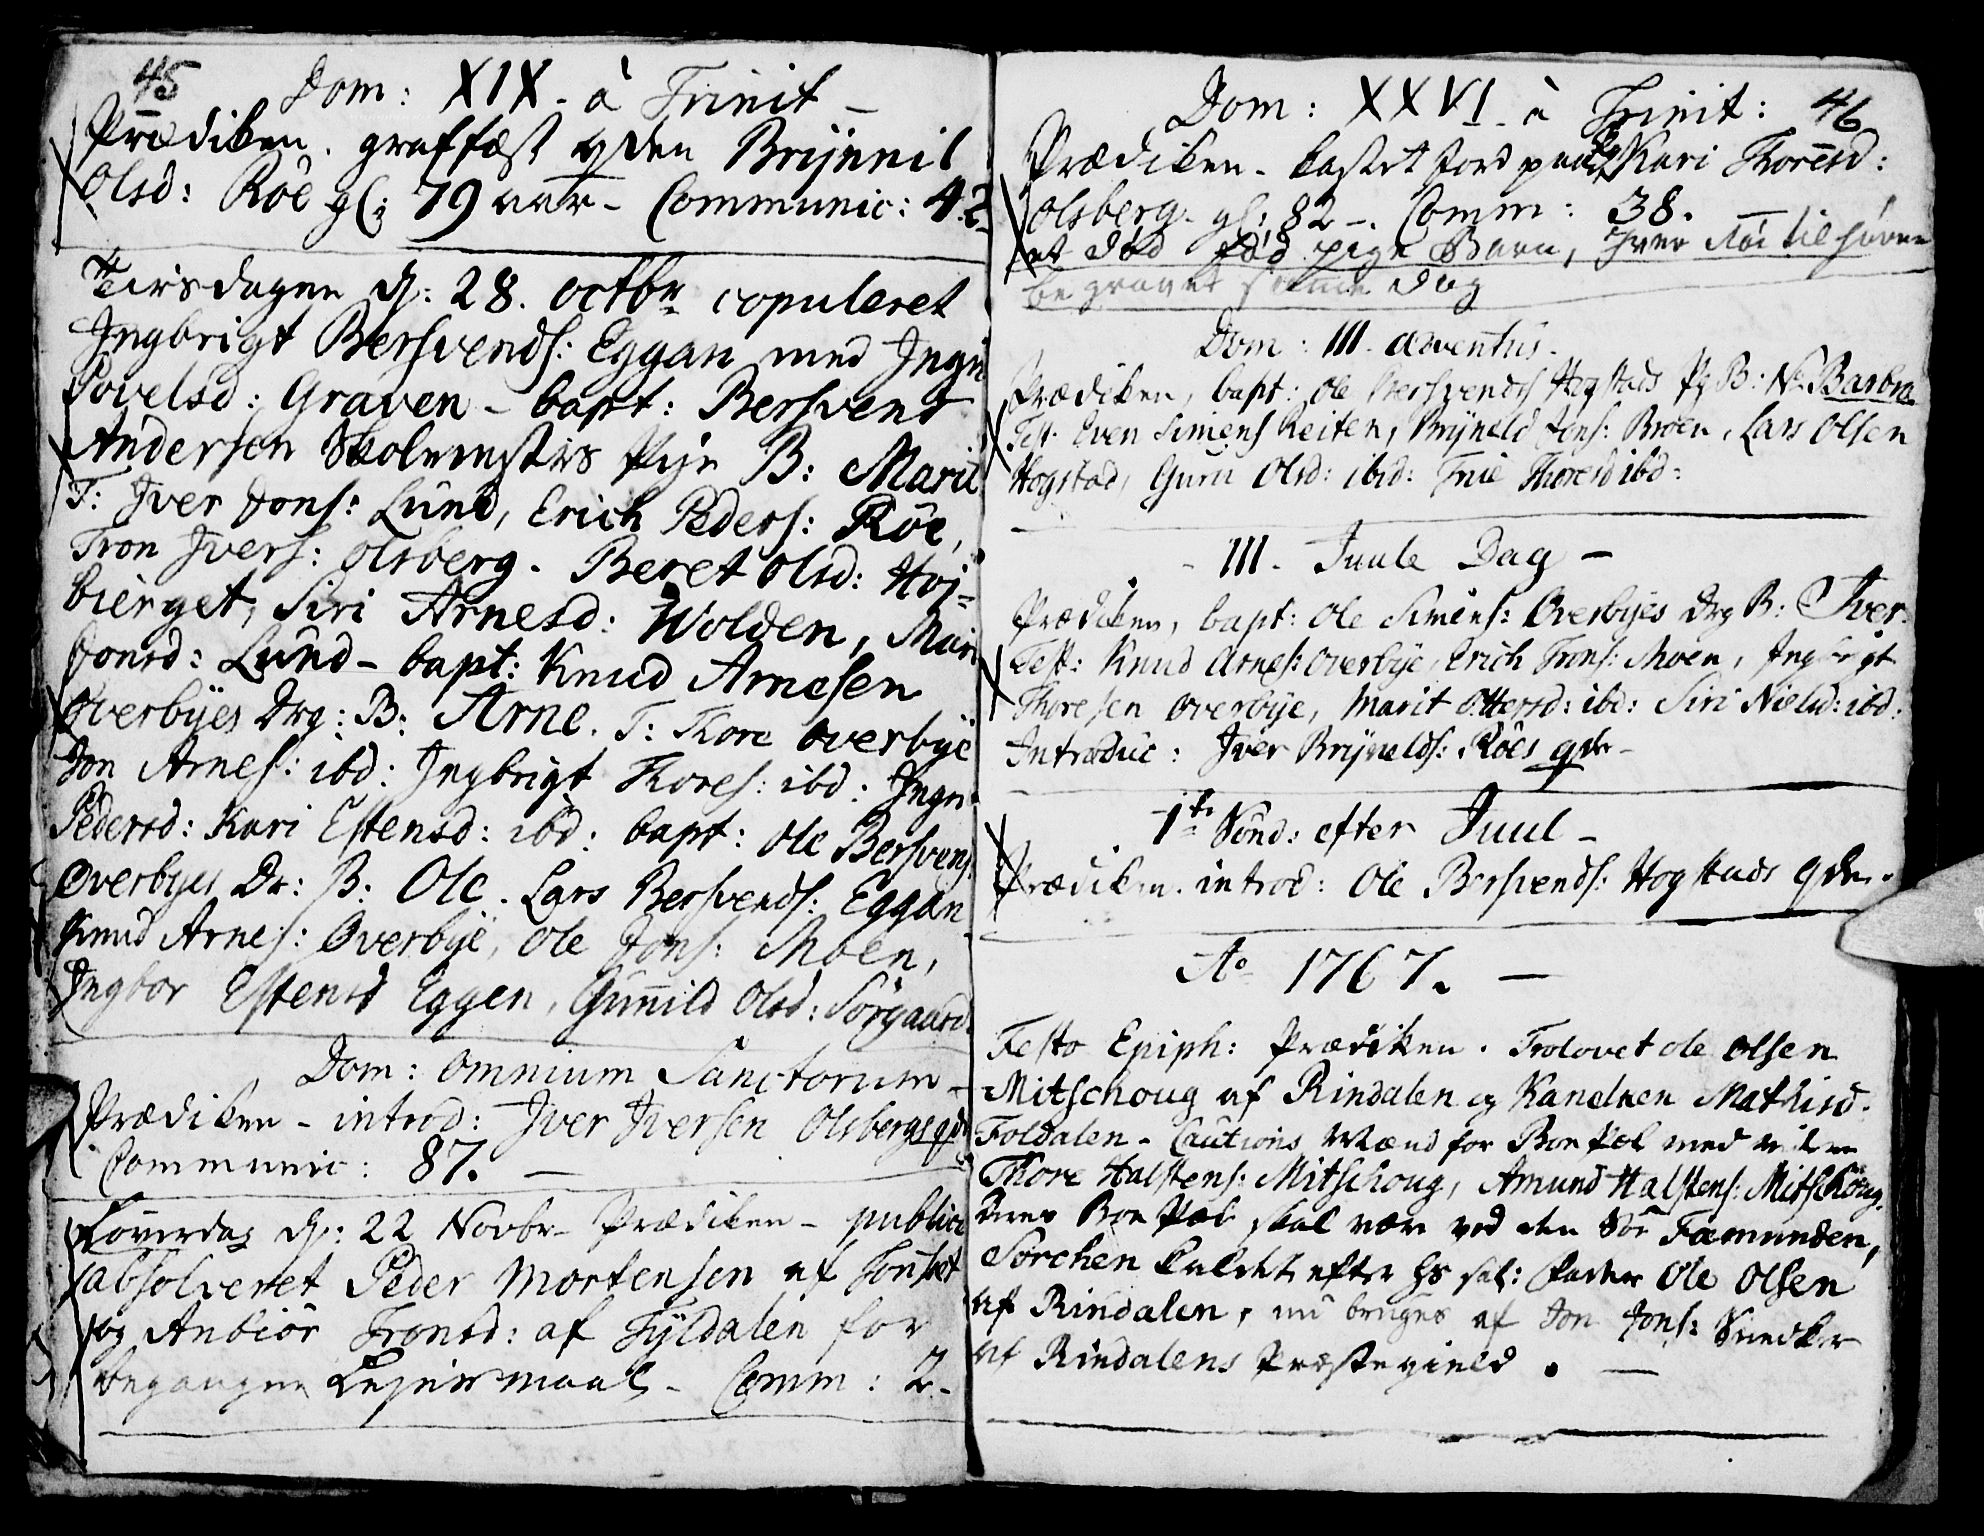 45
Dom: XIX. à Trinit –
Prædiken. graffæst Brynnil
Olsd: Röe gl: 79 aar – Communic: 42
Tirsdagen d: 28. octbr copuleret
Ingbrigt Bersvends: Eggan med
Povelsd: Graven – bapt: Bersvend
Andersen Skolemesters Pige B: Marit
T: Iver Jons: Lund, Erich Peders: Röe,
Tron Ivers: olsberg. Beret olsd: Høj=
bierget, Siri Arnesd: Wolden, Mari
Jonsd: Lund – bapt: Knud Arnesen
Overbyes Drg: B: Arne. T: Thore overbye
Jon Arnes: ibd: Ingbrigt Thores: ibd:
Pedersd: Kari Estensd: ibd: bapt: Ole Bersvens:
Overbyes Dr: B: Ole. Lars Bersvends: Eggan
Knud Arnes: Overbye, Ole Jons: Moen,
Ingbor Estensd Eggen, Gunnild Olsd: Sörgaard.
Dom: omnium Sanctorum –
Prædiken – introd: Iver Iversen Olsbergs qde
Communic: 87. –
Löverdag d: 22 Novbr – Prædiken – publice
absolveret Peder Mortensen af Tönset
og Anbiör Tronsd: af Tyldalen for
begangne Leyermaal – Comm: 2.
Dom: XXVI à Trinit: 46
Prædiken – kastet Jord paa Kari Thoresd:
Olsberg. gl: 82 –. Comm: 38. –
et död föd pige Barn, Iver Röe tilhören
begravet samme dag
Dom: III. adventus.
Prædiken, bapt: Ole Bersvends Hogstads Pg B: N: Barbra
Test. Even Simens Reiten, Bryneld Jons: Broen, Lars Olsen
Hogstad, Guru Olsd: ibid: Thoresd ibd:
– III. Juule Dag –
Prædiken, bapt: Ole Simens: Overbyes Drg B: Iver.
Test: Knud Arnes: Overbye, Erich Trons: Moen, Ingbrigt
Thoresen overbye, Marit Ottersd: ibd: Siri Nielsd: ibd:
Introduc: Iver Brynelds: Röes qde –
1te Sönd: efter Juul –
Prædiken. introd: Ole Bersvends: Hogstads qde.
Ao 1767. –
Festo Epiph: Prædiken. Trolovet ole olsen
Mitschoug af Rindalen og Kanelken Mathisd.
Foldalen – Cautions Mænd for Boepæl med viden
Thore Halstens: Mitschoug, Amund Halstens: Mitschoug.
Deres Boepæl skal være ved den Sör Fæmunden,
Sorchen kaldet efter hs sal: Fader Ole Olsen
af Rindalen, nu bruges af Jon Jons: Snedker
af Rindalens Præstegield. –